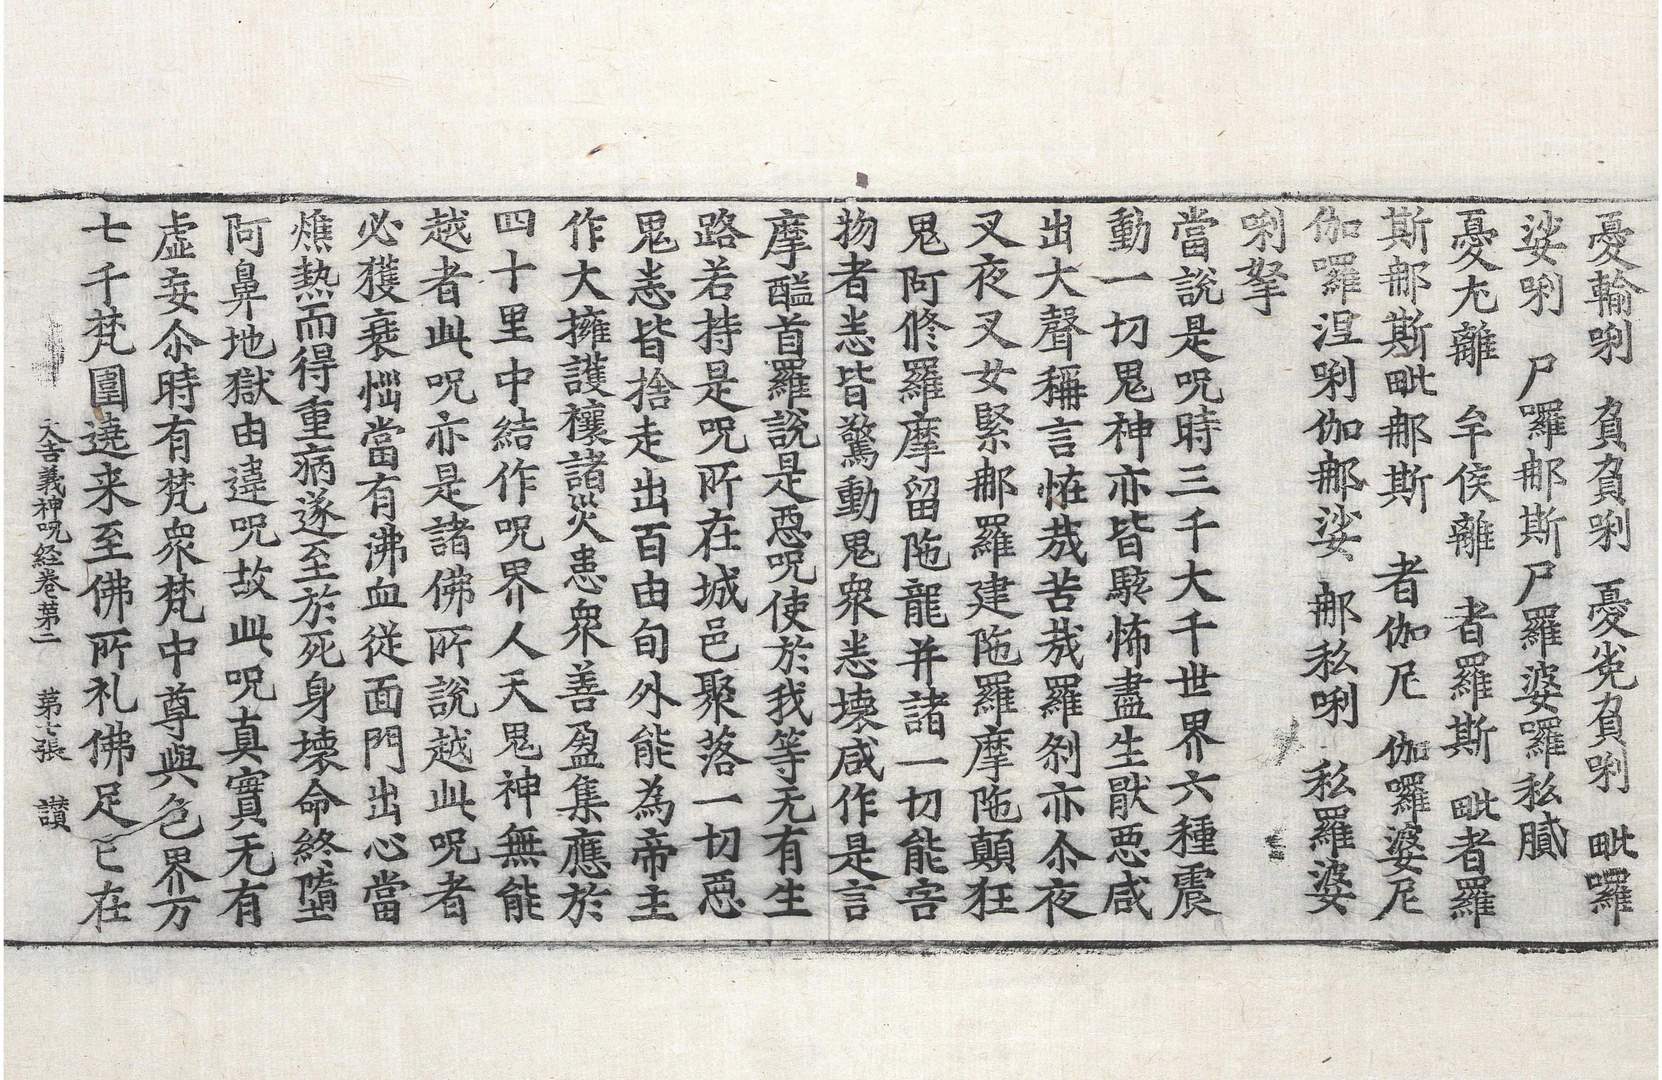 憂輪唎 貟貟唎 憂㝹貟唎 毗囉
娑唎 尸囉那斯尸羅婆囉私膩
憂尢離 牟侯離 者羅斯 毗者羅
斯那斯毗那斯 者伽尼 伽囉婆尼
伽囉涅唎伽那娑 那私唎 私羅婆
唎拏
當說是呪時三千大千世界六種震
動一切鬼神亦皆駭怖盡生猒惡咸
出大聲稱言恠㦲苦㦲羅刹亦尒夜
叉夜叉女緊那羅建陁羅摩陁顛狂
鬼阿修羅摩留陁龍并諸一切能害
物者悉皆驚動鬼衆悉壞咸作是言
摩醯首羅說是惡呪使於我等无有生
路若持是呪所在城邑聚落一切惡
鬼悉皆捨走出百由旬外能為帝主
作大擁護禳諸災患衆善盈集應於
四十里中結作呪界人天鬼神無能
越者此呪亦是諸佛所說越此呪者
必獲衰惱當有沸血從面門出心當
燋熱而得重病遂至於死身壞命終墮
阿鼻地獄由違呪故此呪真實无有
虛妄尒時有梵衆梵中尊與色界万
七千梵圍遶来至佛所礼佛足已在
大吉義神呪経卷第二 第七張 讃